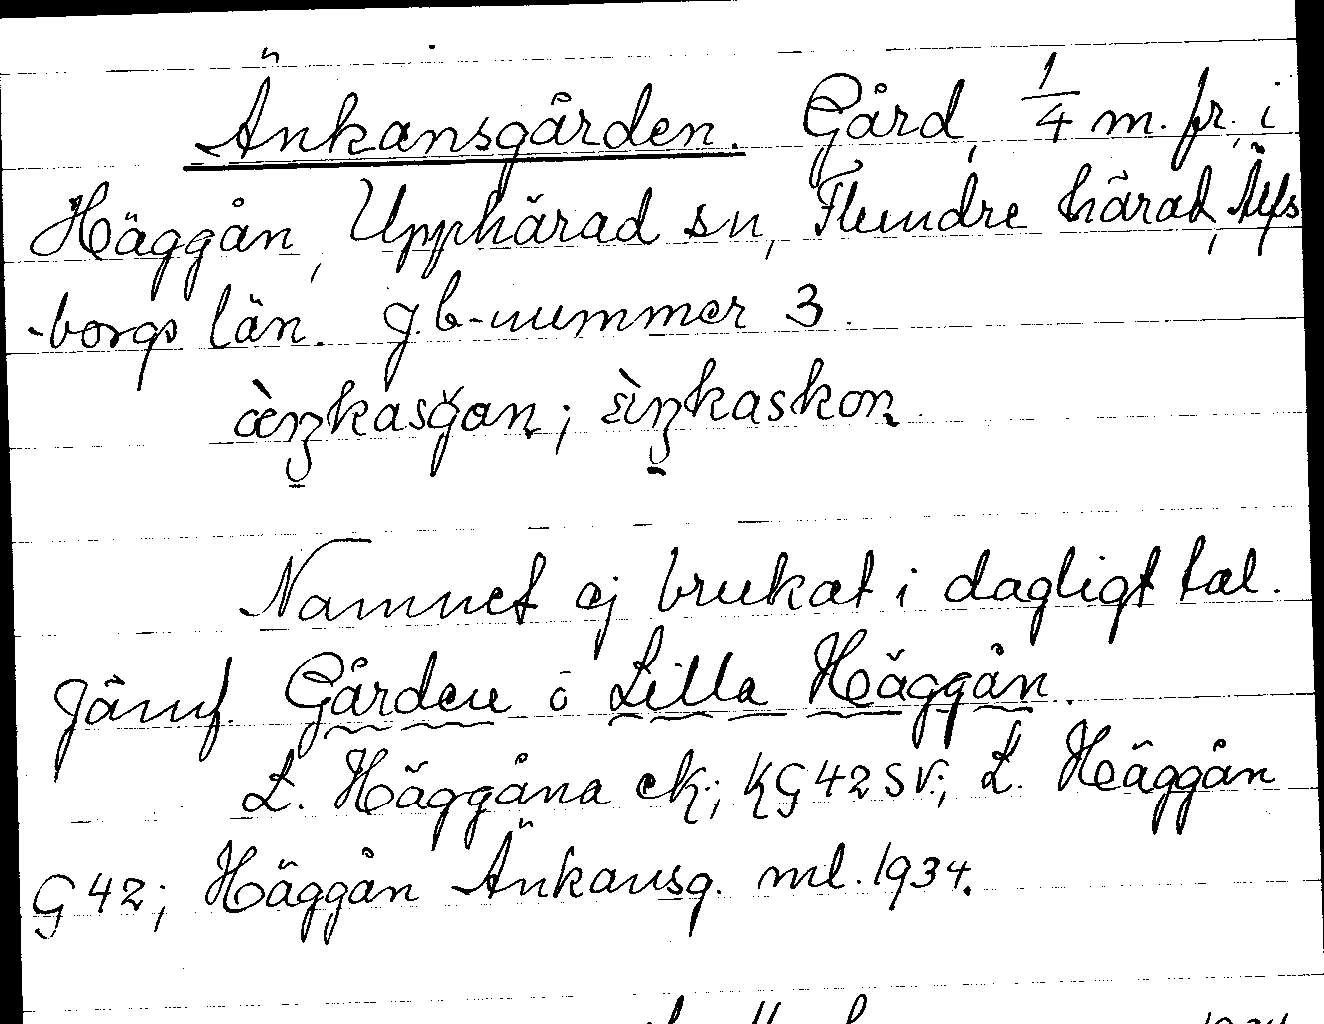 Änkansgården. Gård, 1/4 m. fr. i
Häggån, Upphärad sn, Flundre härad, Älfs
-borgs län. J.b-nummer 3.
Namnet ej brukat i dagligt tal.
Jämf. Gården o Lilla Häggån.
L. Häggåna ek.; KG 42 SV.; L. Häggån
G 42; Häggån Änkansg. ml. 1934.